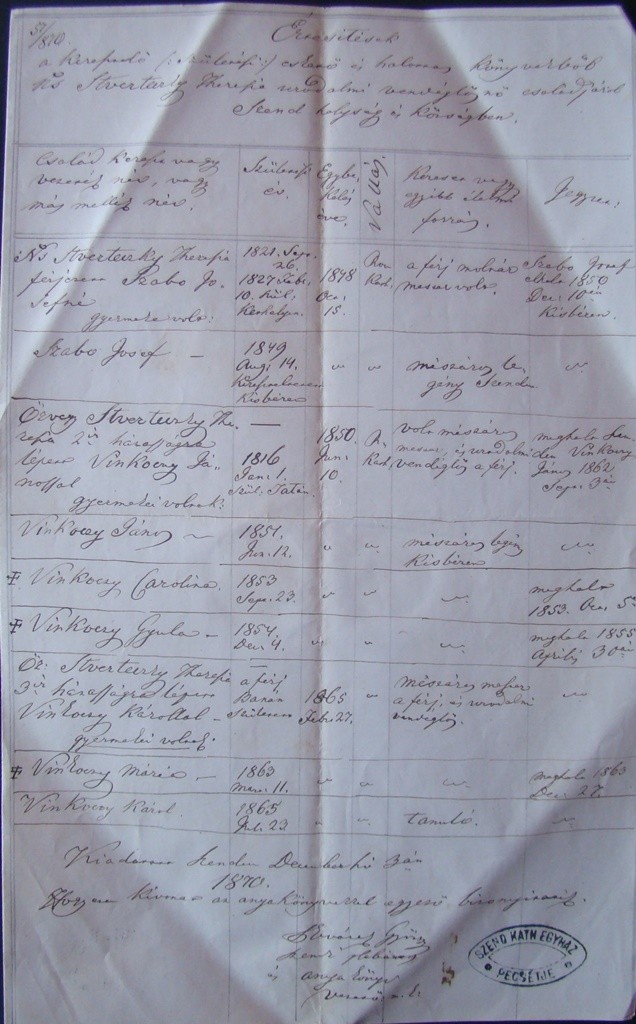 57/870.
Értesítések
a keresztelő (: születési :) eskető és halvány könyvekből
Ns Stverteczky Therézia uradalmi vendéglősnő családjáról
Szend helység és községben.
Család kereszt vagy
vezeték név, vagy
más mellék név.
Születési
év.
Egybe
kelés
éve.
Vallás
Kereset vagy
egyébb élelmi
forrás.
Jegyzet
Ns Stverteczky Therézia
férjezett Szabo Jo-
sefné
gyermeke volt:
1821. Sept.
26.
1827 Febr.
10. Szül.
1848
Oct.
15.
Rom.
Kath.
a férj molnár
mester volt.
Szabo Josef
1850
Dec. 10én
Kisbéren.
Szabo Josef —
1849
Aug. 14.
Kisbéren
〃
〃
mészáros le-
gény Szenden
〃
Özvegy Stverteczky The-
rezia 2ik házasságra
lépett Vinkoczy Já-
nossal
gyermekei voltak:
—
1816
Jan. 1.
Szül. Tatán.
1850.
Jun.
10.
R.
Kath.
volt mészáros
mester, és uradalmi
vendéglős a férj.
meghalt Szen-
den Vinkoczy
János 1862
Sept. 3án
Vinkoczy János —
1851.
Jun. 12.
〃
〃
mészáros legény
Kisbéren
〃
‡ Vinkoczy Carolina.
1853
Sept. 23.
〃
〃
〃
meghalt
1853. Oct. 5én
‡ Vinkoczy Gyula —
1854.
Dec. 4.
〃
〃
〃
meghalt 1855
Április 30án
Öz: Stverteczky Therézia
3ik házasságra lépett
Vinkoczy Károllal —
gyermekei voltak:
—
a férj
Született
1865
Feb. 27.
〃
mészáros mester
a férj, és uradalmi
vendéglős.
〃
‡ Vinkoczy Mária —
1863
Mart. 11.
〃
〃
〃
meghalt 1863
Dec. 27.
Vinkoczy Károl.
1865
Jul. 23
〃
〃
tanuló.
〃
Kiadatott Szenden December hó 3án
1870.
Hogy ezen kivonat az anyakönyvvel egyező bizonyítatik.
Kovács György
Szendi plébános
és anya könyv
vezető m. k.
SZEND KATH EGYHÁZ
PECSÉTJE